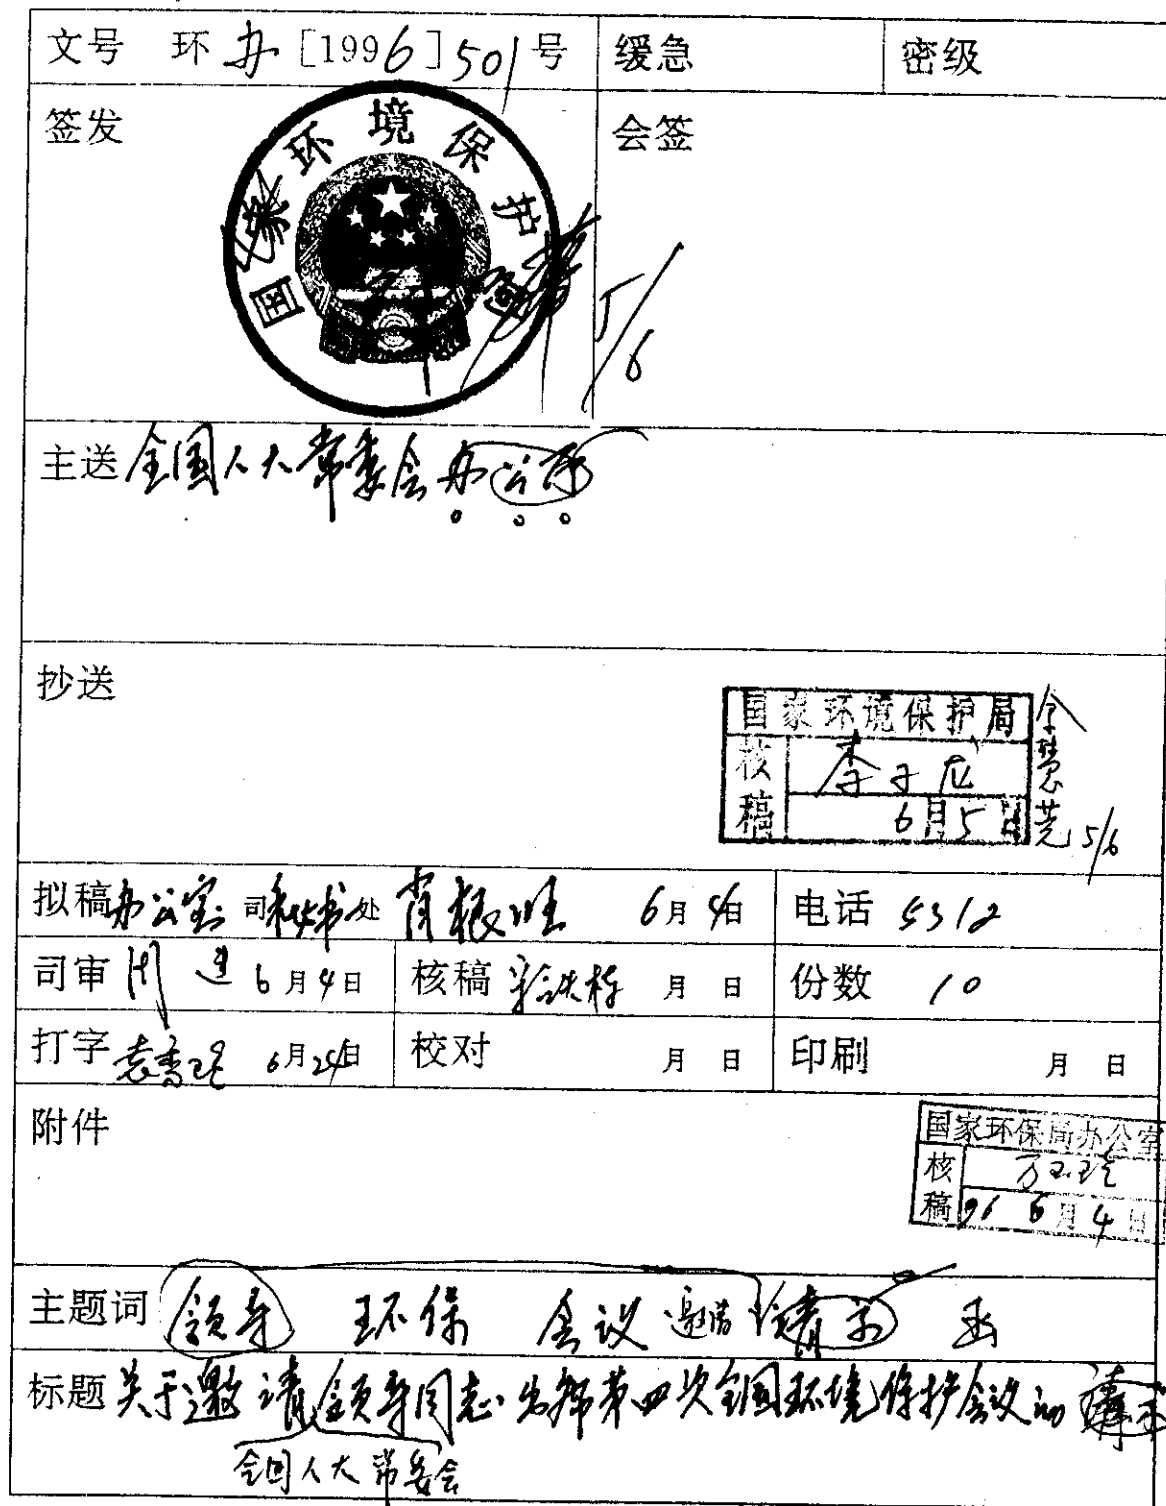 文号 环办[1996]501号 缓急 密级
签发 会签
国家环境保护局
5/6
主送 全国人大常委会办公厅
抄送
国家环境保护局
核稿 李子成
6月5日
5/6
拟稿 办公室 司秘书处 肖根旺 6月4日 电话 5312
司审 6月4日 核稿 月 日 份数 10
打字 6月24日 校对 月 日 印刷 月 日
附件
国家环保局办公室
核稿
96 6月4日
主题词 领导 环保 会议 邀请 请示 函
标题 关于邀请领导同志出席第四次全国环境保护会议的请示
全国人大常委会